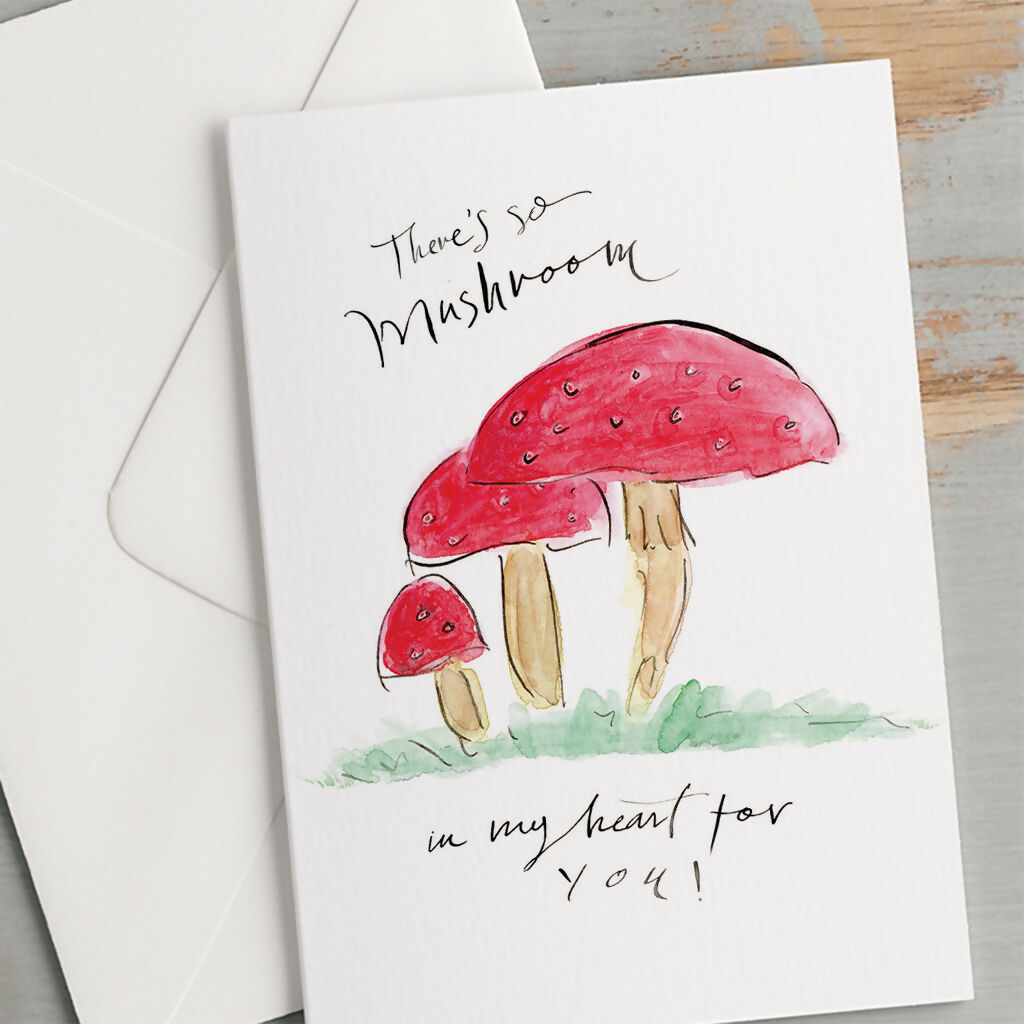 There's so
Mushroom
in my heart for
YOU!